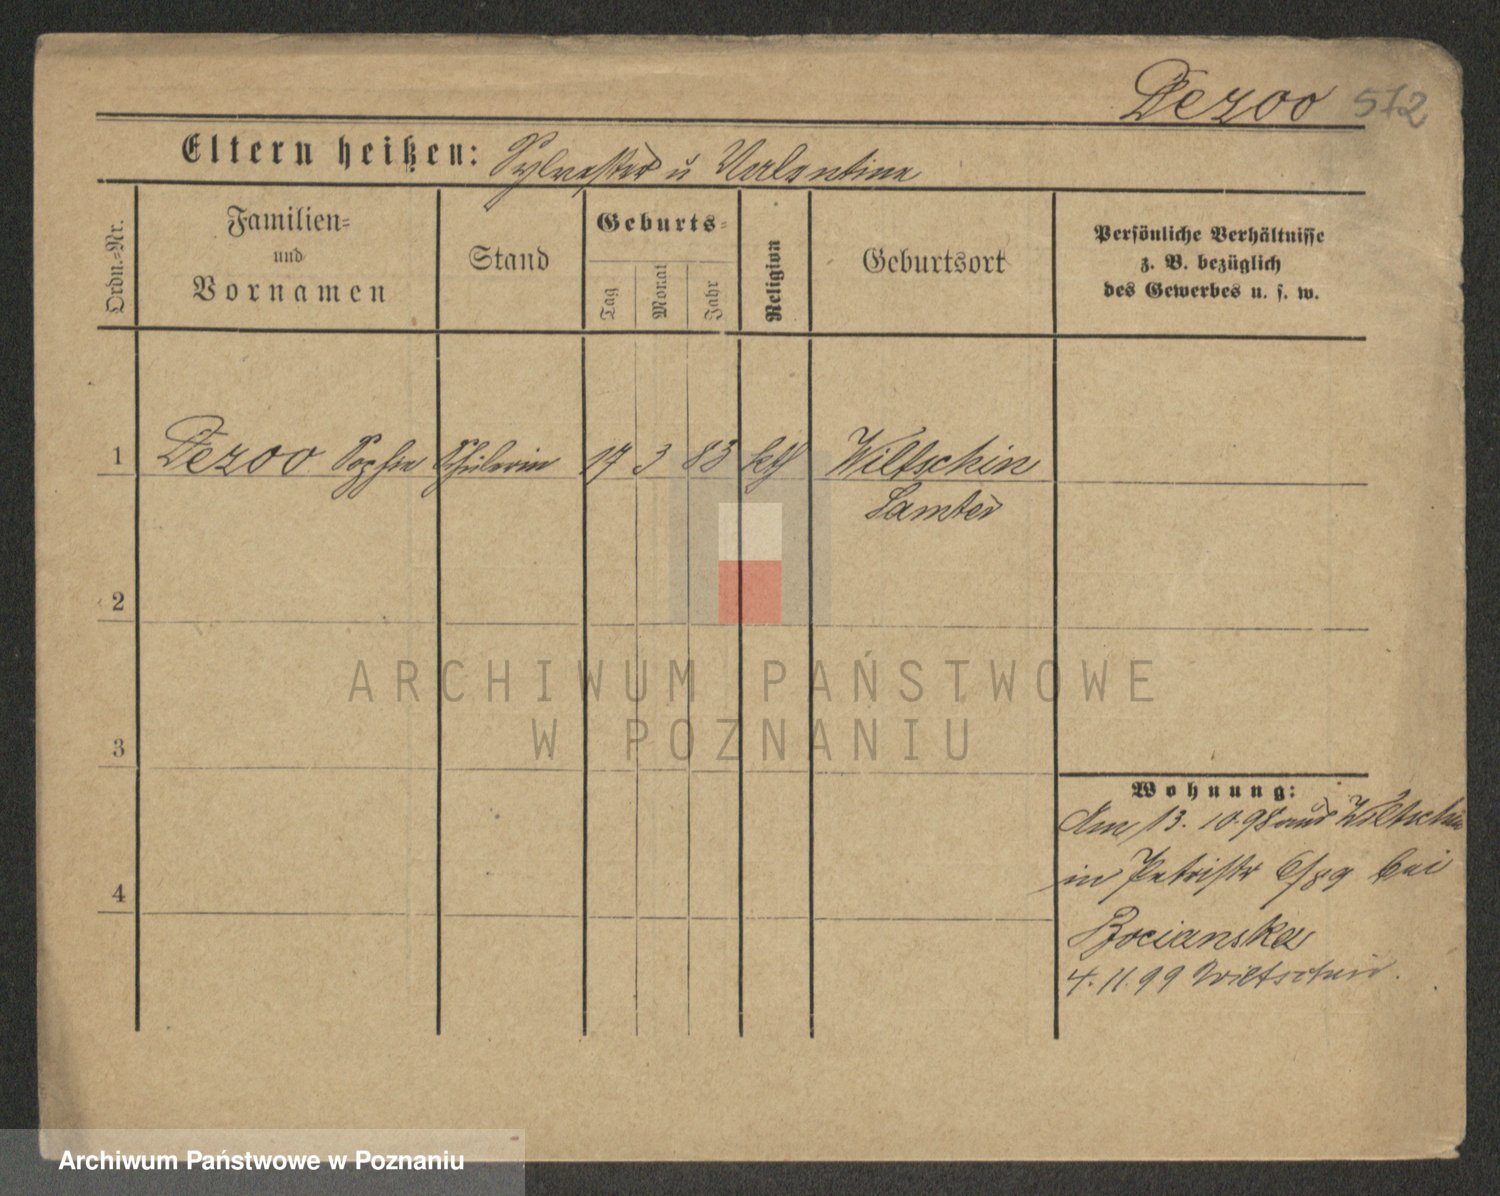 Dezoo 572
Eltern heißen: Sylvester u Valentine
Ordn.-Nr.
Familien-
und
Vornamen
Stand
Geburts-
Tag
Monat
Jahr
Religion
Geburtsort
Persönliche Verhältnisse
z. B. bezüglich
des Gewerbes u. s. w.
1 Dezoo Sophie Schülerin 17 3 83 kth Wiltschin
Samter
2
3
4
Wohnung:
Am 13. 10. 98 aus Wiltschin
in Petristr 6/ bei
Bocianska
4. 11. 99 Wiltschin.
ARCHIWUM PAŃSTWOWE
W POZNANIU
Archiwum Państwowe w Poznaniu